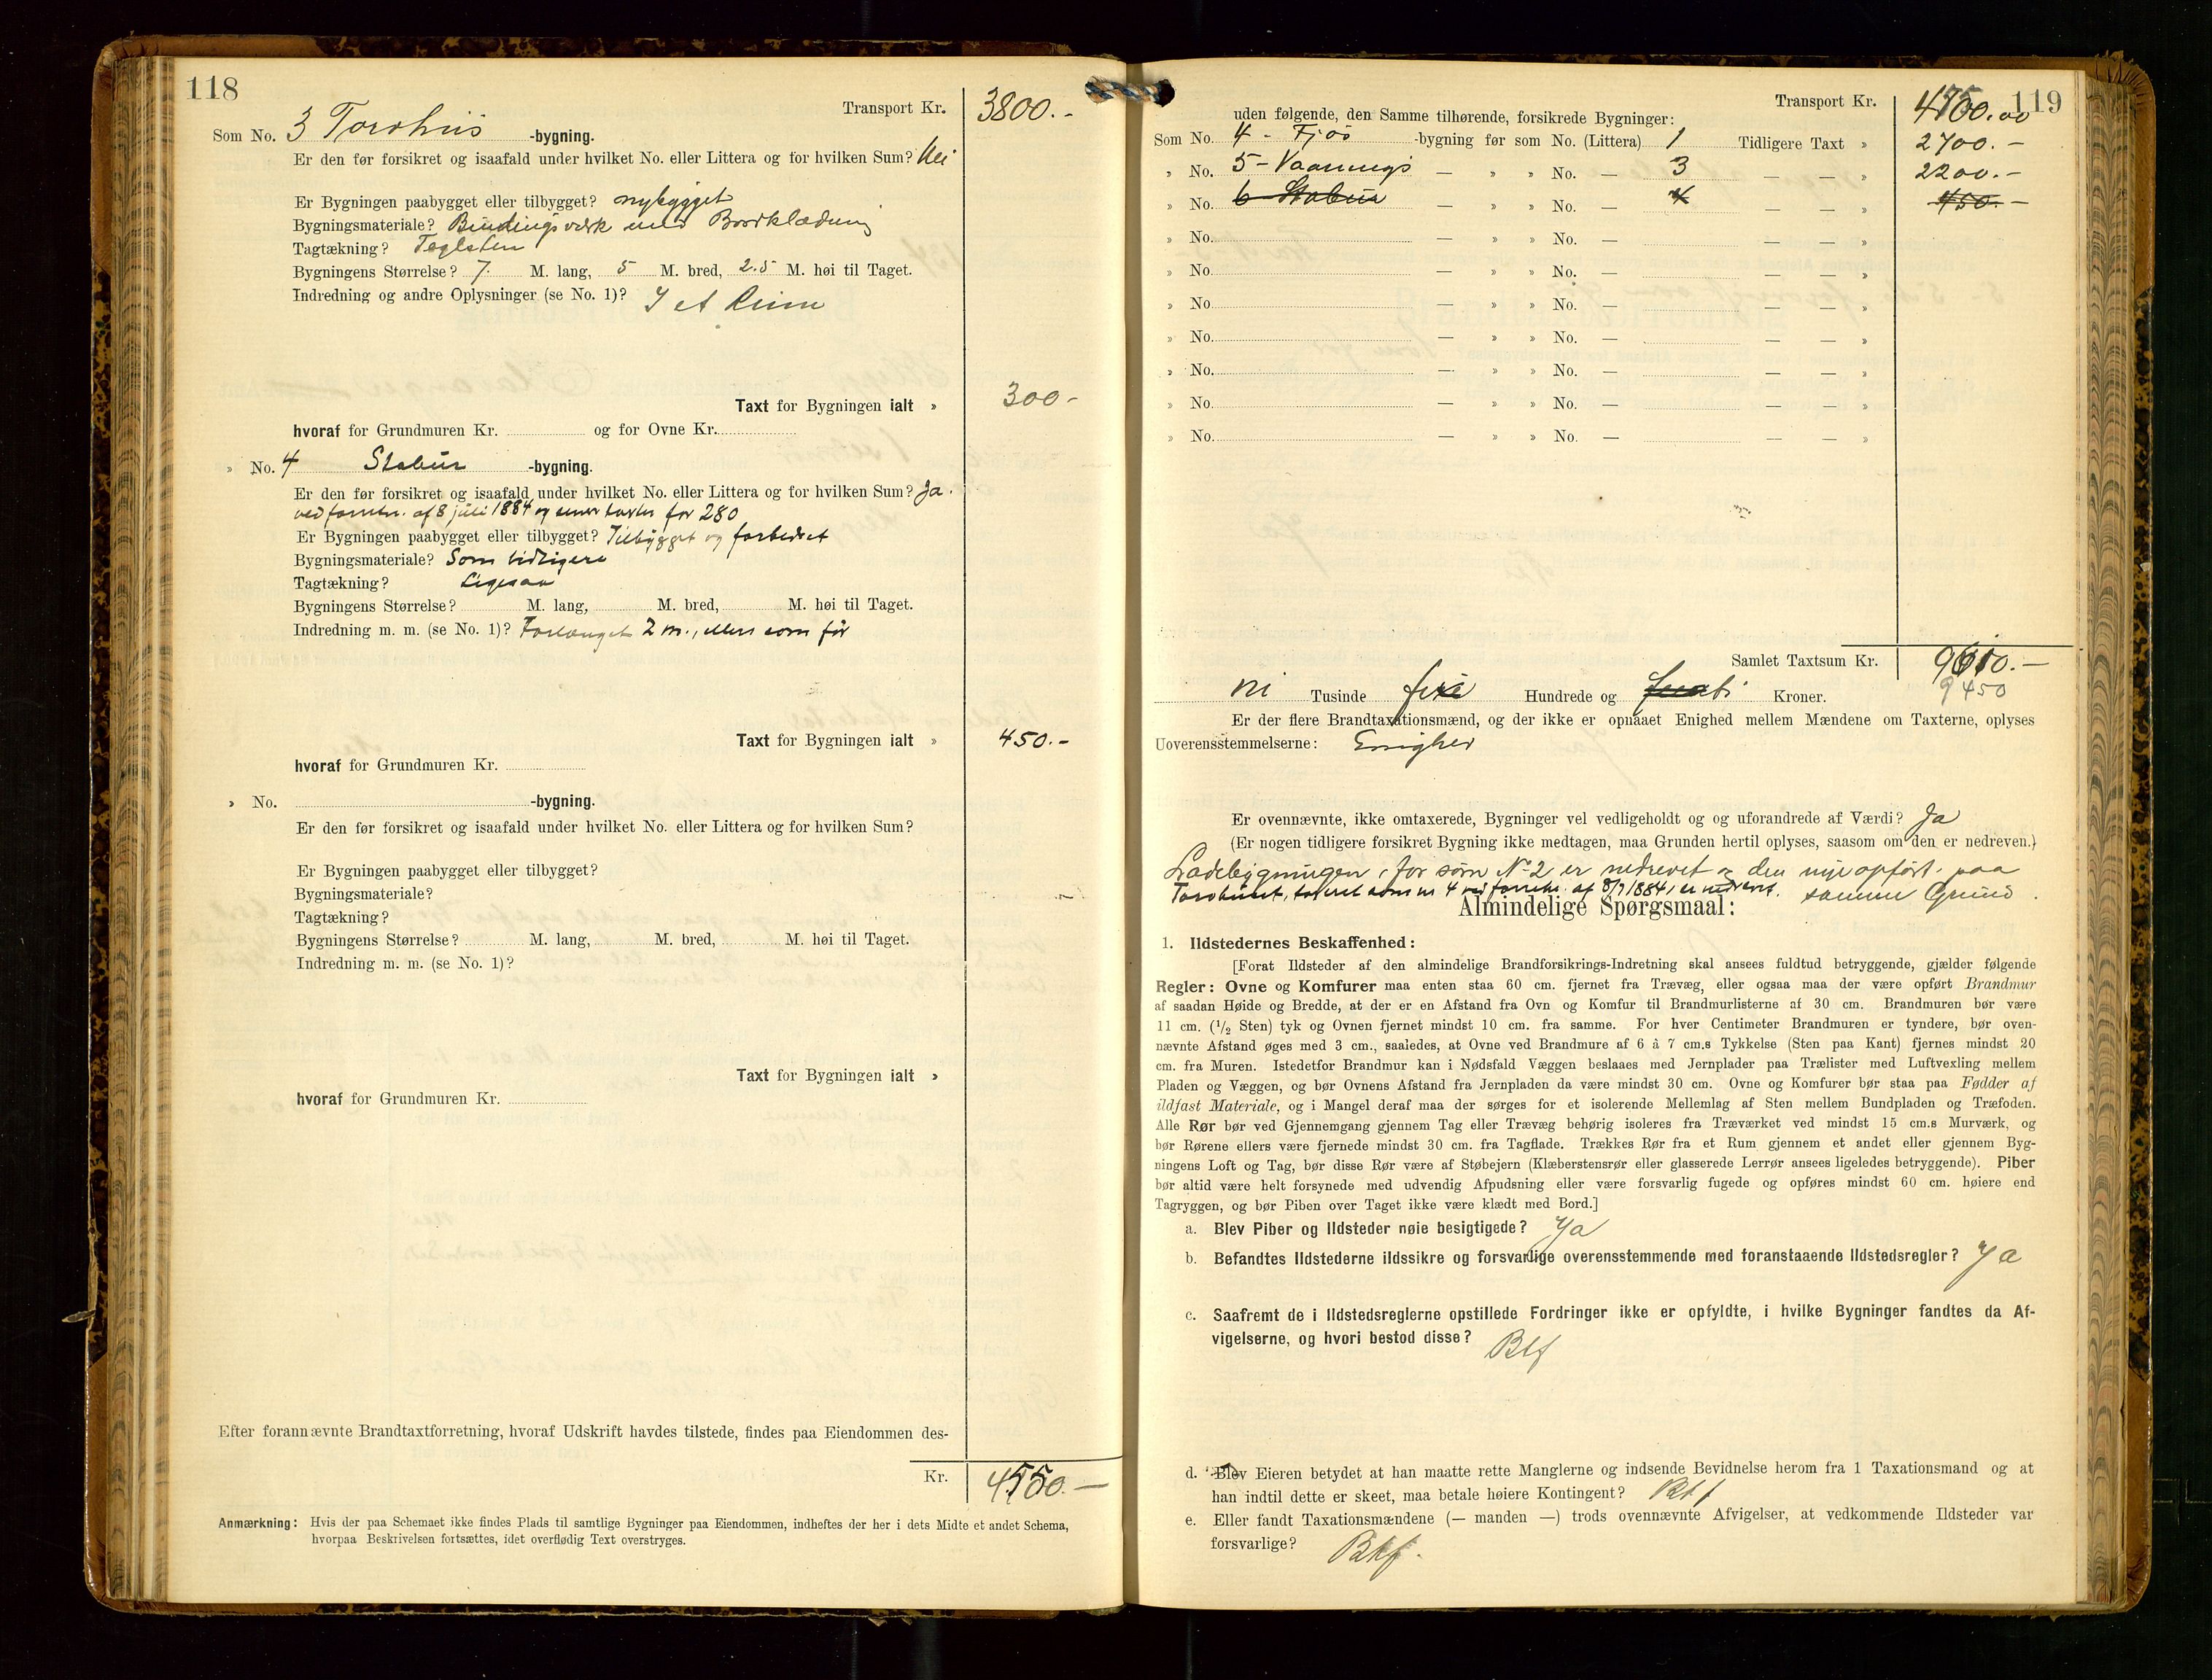 118
Transport Kr. 3800.-
Som No. 3 Torvhus -bygning.
Er den før forsikret og isaafald under hvilket No. eller Littera og for hvilken Sum? Nei
Er Bygningen paabygget eller tilbygget? nybygget
Bygningsmateriale? Bindingsværk med Bordklædning
Tagtækning? Teglsten
Bygningens Størrelse? 7. M. lang, 5 M. bred, 2.5 M. høi til Taget.
Indredning og andre Oplysninger (se No. 1)? I et Rum
Taxt for Bygningen ialt » 300-
hvoraf for Grundmuren Kr. og for Ovne Kr.
» No. 4 Stabur -bygning.
Er den før forsikret og isaafald under hvilket No. eller Littera og for hvilken Sum? Ja.
ved forretn. af 8 juli 1884 og for 280
Er Bygningen paabygget eller tilbygget? Tilbygget og forbedret
Bygningsmateriale? Som tidligere
Tagtækning? Ligesaa
Bygningens Størrelse? M. lang, M. bred, M. høi til Taget.
Indredning m. m. (se No. 1)? Forlænget 2 m., ellers som før
Taxt for Bygningen ialt » 450.-
hvoraf for Grundmuren Kr.
» No. -bygning.
Er den før forsikret og isaafald under hvilket No. eller Littera og for hvilken Sum?
Er Bygningen paabygget eller tilbygget?
Bygningsmateriale?
Tagtækning?
Bygningens Størrelse? M. lang, M. bred, M. høi til Taget.
Indredning m. m. (se No. 1)?
Taxt for Bygningen ialt »
hvoraf for Grundmuren Kr.
Efter forannævnte Brandtaxtforretning, hvoraf Udskrift havdes tilstede, findes paa Eiendommen des-
Kr. 4550.-
Anmærkning: Hvis der paa Schemaet ikke findes Plads til samtlige Bygninger paa Eiendommen, indheftes der her i dets Midte et andet Schema,
hvorpaa Beskrivelsen fortsættes, idet overflødig Text overstryges.
119
Transport Kr.
uden følgende, den Samme tilhørende, forsikrede Bygninger:
Som No. 4 - Fjøs -bygning før som No. (Littera) 1 Tidligere Taxt » 2700.-
» No. 5 - Vaanings — » » No. — 3 — — » 2200.-
» No. 6 Stabur — » » No. — 4 — — » 450.-
» No. — » » No. — — — »
» No. — » » No. — — — »
» No. — » » No. — — — »
» No. — » » No. — — — »
» No. — » » No. — — — »
» No. — » » No. — — — »
» No. — » » No. — — — »
Samlet Taxtsum Kr.
9450
ni Tusinde fire Hundrede og Kroner.
Er der flere Brandtaxationsmænd, og der ikke er opnaaet Enighed mellem Mændene om Taxterne, oplyses
Uoverensstemmelserne: Enighed
Er ovennævnte, ikke omtaxerede, Bygninger vel vedligeholdt og og uforandrede af Værdi? Ja
(Er nogen tidligere forsikret Bygning ikke medtagen, maa Grunden hertil oplyses, saasom om den er nedreven.)
Ladebygningen, før som No 2 er nedrevet og den nye opført. paa
Torvhuset, taxeret som nr 4 ved forretn. af 8/7 1884, er nedrevet. samme Grund.
Almindelige Spørgsmaal:
1. Ildstedernes Beskaffenhed:
[Forat Ildsteder af den almindelige Brandforsikrings-Indretning skal ansees fuldtud betryggende, gjælder følgende
Regler: Ovne og Komfurer maa enten staa 60 cm. fjernet fra Trævæg, eller ogsaa maa der være opført Brandmur
af saadan Høide og Bredde, at der er en Afstand fra Ovn og Komfur til Brandmurlisterne af 30 cm. Brandmuren bør være
11 cm. (1/2 Sten) tyk og Ovnen fjernet mindst 10 cm. fra samme. For hver Centimeter Brandmuren er tyndere, bør oven-
nævnte Afstand øges med 3 cm., saaledes, at Ovne ved Brandmure af 6 à 7 cm.s Tykkelse (Sten paa Kant) fjernes mindst 20
cm. fra Muren. Istedetfor Brandmur kan i Nødsfald Væggen beslaaes med Jernplader paa Trælister med Luftvexling mellem
Pladen og Væggen, og bør Ovnens Afstand fra Jernpladen da være mindst 30 cm. Ovne og Komfurer bør staa paa Fødder af
ildfast Materiale, og i Mangel deraf maa der sørges for et isolerende Mellemlag af Sten mellem Bundpladen og Træfoden.
Alle Rør bør ved Gjennemgang gjennem Tag eller Trævæg behørig isoleres fra Træværket ved mindst 15 cm.s Murværk, og
bør Rørene ellers være fjernede mindst 30 cm. fra Tagflade. Trækkes Rør fra et Rum gjennem et andet eller gjennem Byg-
ningens Loft og Tag, bør disse Rør være af Støbejern (Klæberstensrør eller glasserede Lerrør ansees ligeledes betryggende). Piber
bør altid være helt forsynede med udvendig Afpudsning eller være forsvarlig fugede og opføres mindst 60 cm. høiere end
Tagryggen, og bør Piben over Taget ikke være klædt med Bord.]
a. Blev Piber og Ildsteder nøie besigtigede? Ja
b. Befandtes Ildstederne ildssikre og forsvarlige overensstemmende med foranstaaende Ildstedsregler? Ja
c. Saafremt de i Ildstedsreglerne opstillede Fordringer ikke er opfyldte, i hvilke Bygninger fandtes da Af-
vigelserne, og hvori bestod disse? Btf
d. Blev Eieren betydet at han maatte rette Manglerne og indsende Bevidnelse herom fra 1 Taxationsmand og at
han indtil dette er skeet, maa betale høiere Kontingent? Btf
e. Eller fandt Taxationsmændene (— manden —) trods ovennævnte Afvigelser, at vedkommende Ildsteder var
forsvarlige? Btf.